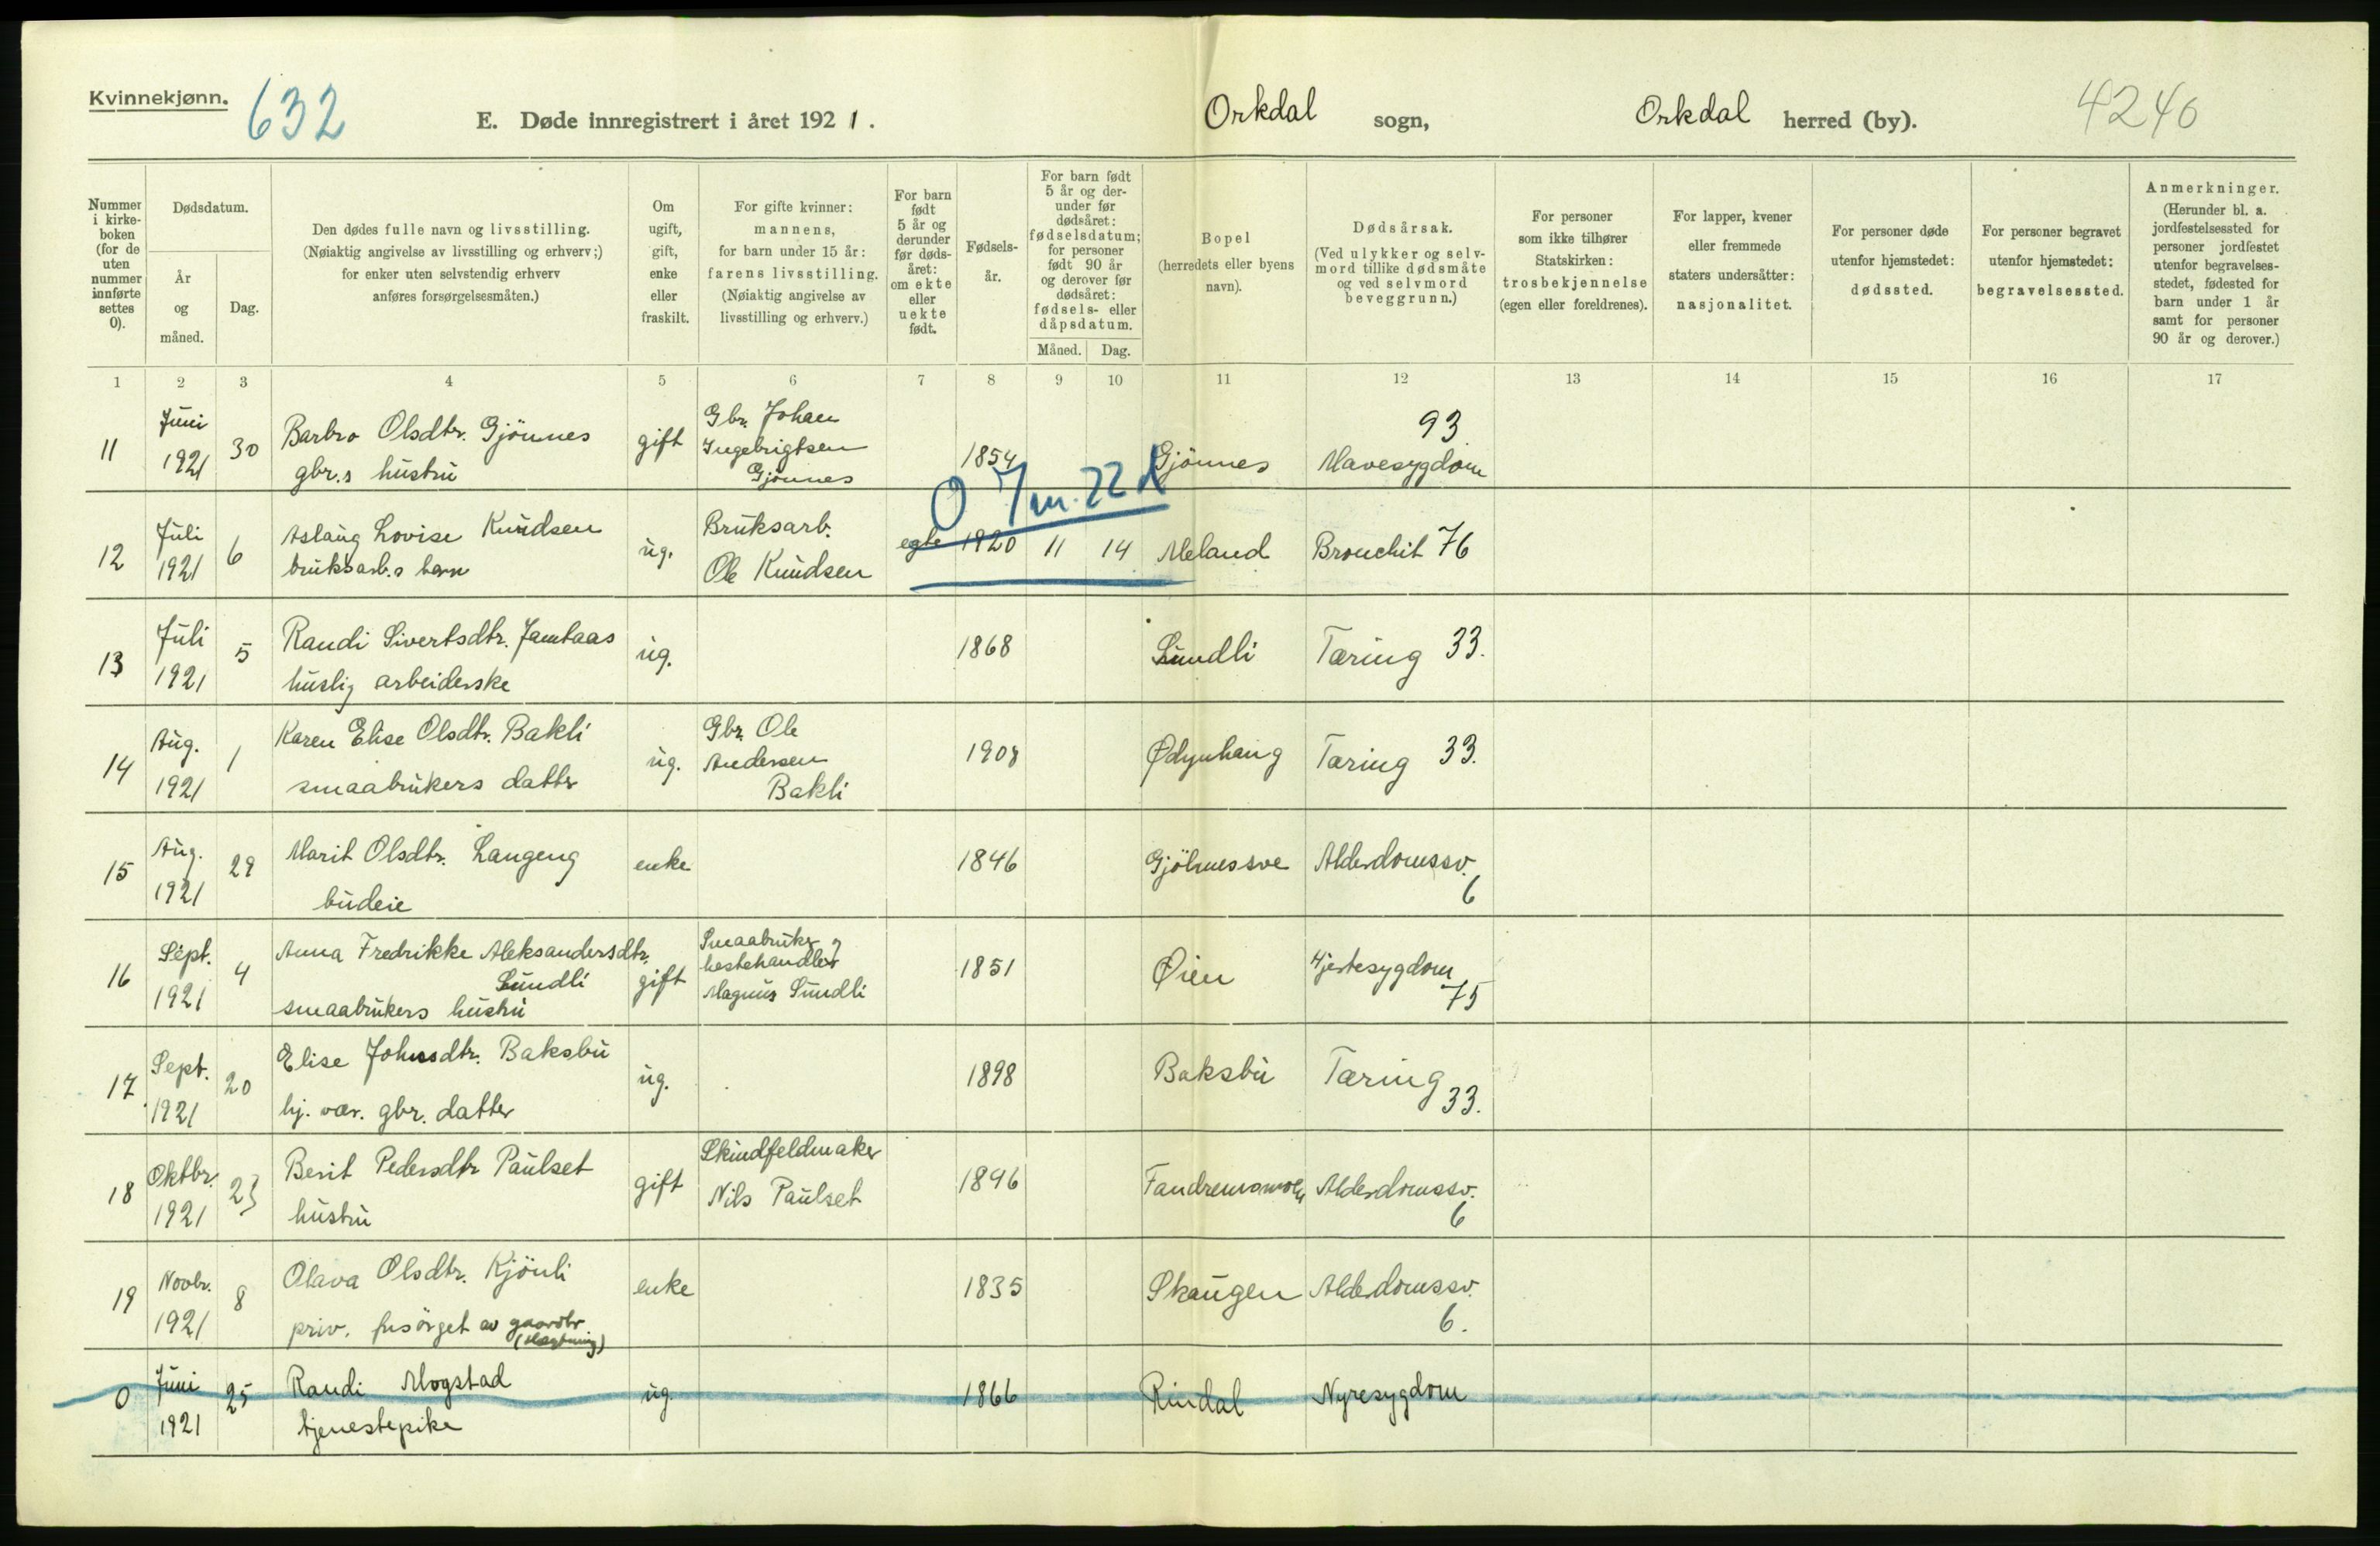 Kvinnekjønn.
632
E. Døde innregistrert i året 1921.
Orkdal sogn,
Orkdal herred (by).
4240
Nummer i kirkeboken (for de uten nummer innførte settes 0).
Dødsdatum.
År og måned.
Dag.
Den dødes fulle navn og livsstilling.
(Nøiaktig angivelse av livsstilling og erhverv;)
for enker uten selvstendig erhverv
anføres forsørgelsesmåten.)
Om ugift, gift, enke eller fraskilt.
For gifte kvinner:
mannens,
for barn under 15 år:
farens livsstilling.
(Nøiaktig angivelse av
livsstilling og erhverv.)
For barn født 5 år og derunder før dødsåret: om ekte eller uekte født.
Fødselsår.
For barn født 5 år og derunder før dødsåret: fødselsdatum; for personer født 90 år og derover før dødsåret: fødsels- eller dåpsdatum.
Måned. Dag.
Bopel
(herredets eller byens
navn).
Dødsårsak.
(Ved ulykker og selvmord tillike dødsmåte og ved selvmord beveggrunn.)
For personer
som ikke tilhører
Statskirken:
trosbekjennelse
(egen eller foreldrenes).
For lapper, kvener
eller fremmede
staters undersåtter:
nasjonalitet.
For personer døde
utenfor hjemstedet:
dødssted.
For personer begravet
utenfor hjemstedet:
begravelsessted.
Anmerkninger.
(Herunder bl. a.
jordfestelsessted for
personer jordfestet
utenfor begravelses-
stedet, fødested for
barn under 1 år
samt for personer
90 år og derover.)
1 2 3 4 5 6 7 8 9 10 11 12 13 14 15 16 17
11 Juni 1921 30 Barbro Olsdtr. Gjönnes gbr.s hustru gift Gbr. Johan Ingebrigtsen Gjönnes 1854 Gjönnes 93 Mavesygdom
0 7 m. 22 d
12 Juli 1921 6 Aslaug Lovise Knudsen bruksarb.s barn ug. Bruksarb. Ole Knudsen egte 1920 11 14 Meland Bronchit 76
13 Juli 1921 5 Randi Sivertsdtr. Jamtaas huslig arbeiderske ug. 1868 Sundli Tæring 33.
14 Aug. 1921 1 Karen Elise Olsdtr. Bakli smaabrukers datter ug. Gbr. Ole Andersen Bakli 1908 Tæring 33.
15 Aug. 1921 29 Marit Olsdtr. Langeng budeie enke 1846 Alderdomssv. 6
16 Sept. 1921 4 Anna Fredrikke Aleksandersdtr. Sundli smaabrukers hustru gift Smaabruker og hestehandler Magnus Sundli 1851 Øien Hjertesygdom 75
17 Sept. 1921 20 Elise Johnsdtr. Baksbu hj. vær. gbr. datter ug. 1898 Baksbu Tæring 33.
18 Oktbr. 1921 23 Berit Pedersdtr Paulset hustru gift Skindfeldmaker Nils Paulset 1846 Fandremsmoen Alderdomssv. 6
19 Novbr. 1921 8 Olava Olsdtr. Kjönli priv. forsörget av gaardbr. enke 1835 Skaugen Alderdomssv. 6.
0 Juni 1921 25 Randi Mogstad tjenestepike ug. 1866 Rindal Nyresygdom